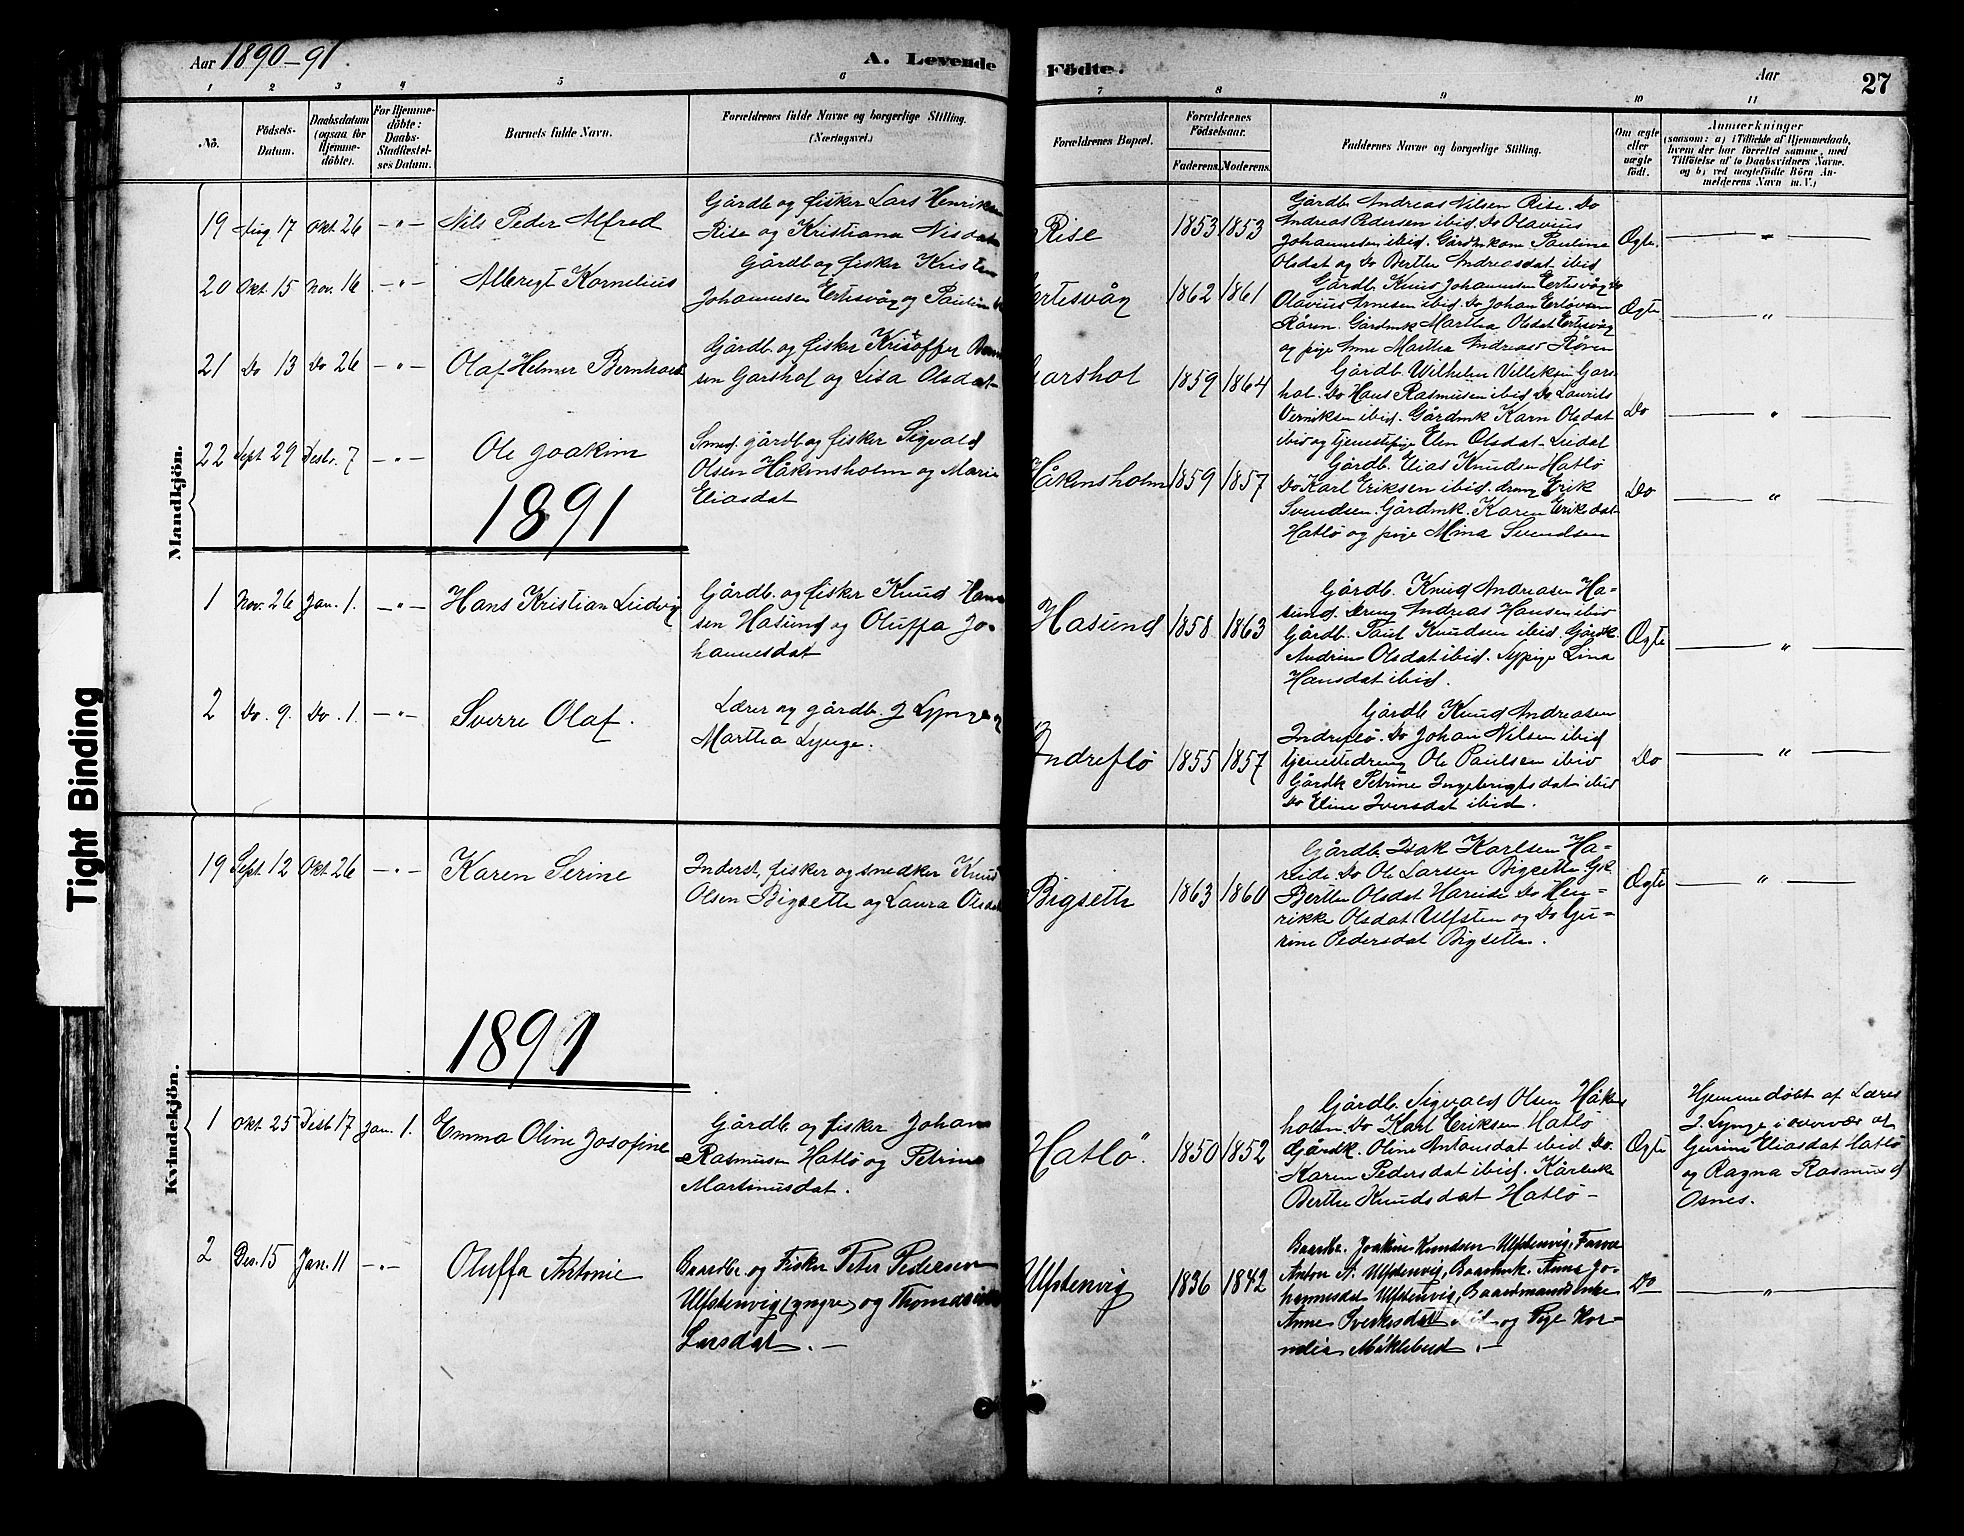 Aar 1890-91.
A. Levende
Födte.
Aar
27
1 2 3 4 5 6 7 8 9 10 11
No.
Födsels-
Datum.
Daabsdatum
(ogsaa for
Hjemme-
döbte).
For Hjemme-
döbte:
Daabs-
Stadfæstel-
ses Datum.
Barnets fulde Navn.
Forældrenes fulde Navne og borgerlige Stilling.
(Næringsvei.)
Forældrenes Bopæl.
Forældrenes
Födselsaar.
Faderens. Moderens.
Faddernes Navne og borgerlige Stilling.
Om ægte
eller
uægte
født.
Anmærkninger
(saasom: a) i Tilfælde af Hjemmedaab,
hvem der har forrettet samme, med
Tilföielse af to Daabsvidners Navne,
og b) ved uægtefödte Börn An-
melderens Navn m. V.)
Mandkjön.
19 Aug 17 Okt. 26 -"- Nils Peder Alfred
Gårdb. og fisker Lars Henriksen
Rise og Kristiana Nilsdat
Rise 1853 1853
Gårdb. Andreas Nilsen Rise. Do
Andreas Pedersen ibid. Do Olavius
Johannesen ibid. Gårdmkone Pauline
Olsdat og Do Berthe Andreasdat ibid
Ægte. "
20 Okt. 15 Nov. 16 -"- Albregt Kornelius
Gårdb og fisker Kristen
Johannesen Eertesvåg og Pauline
Eertesvåg 1862 1861
Gårdb. Knud Johannesen Eertesvåg Do
Olavius Arnesen ibid. Do Johan
Røren. Gårdmk Martha Olsdat Eertesvåg
og pige Anne Martha Andreasd Røren
Ægte. "
21 Do 13 Do 26 -"- Olaf Helmer Bernhard
Gårdb. og fisker Kristoffer
sen Garshol og Lisa Olsdat
Garshol 1859 1864
Gårdb. Wilhelm Villiksen Gars-
hol. Do Hans Rasmusen ibid Do Laurits
Verniksen ibid. Gårdmk Karn Olsdat
ibid og tjenestepige Elen Olsdat Leidal
Do "
22 Sept 29 Desbr. 7 -"- Ole Joakim
Smed, gårdb. og fisker Sigvald
Olsen Håkonsholm og Marie
Eliasdat
Håkonsholm 1859 1857
Gårdb. Elias Knudsen Hatlø
Do Karl Eriksen ibid. dreng Erik
Svendsen. Gårdmk. Karen Eriksdat
Hatlø og pige Mina Svendsen
Do "
1891
1 Nov. 26 Jan. 1. -"- Hans Kristian Ludvig
Gårdb. og fisker Knud Han-
sen Hasund og Oluffa Jo-
hannesdat
Hasund 1858 1863
Gårdb. Knud Andreasen Ha-
sund. Dreng Andreas Hansen ibid
Gårdb. Paul Knudsen ibid Gårdk.
Andrine Olsdat ibid. Sypige Lina
Hansdat ibid.
Ægte "
2 Do. 9. Do. 1. -"- Sverre Olaf.
Lærer og gårdb. J Lynge og
Martha Lynge.
Indreflø 1855 1857
Gårdb Knud Andreasen
Indreflø. Do Johan Nilsen ibid
tjenestedreng Ole Paulsen ibid
Gårdk Petrine Ingebrigtsdat ibid
Do Eline Iversdat ibid.
Do "
Kvindekjön.
19 Sept 12 Okt. 26 -"- Karen Serine
Inderst, fisker og snedker Knud
Olsen Bigseth og Laura Olsdat
Bigseth 1863 1860
Gårdb. Isak Karlsen Ha-
reide. Do Ole Larsen Bigseth. Gk
Berthe Olsdat Hareide Do Hen-
rikke Olsdat Ulfsten og Do Gu-
rine Pedersdat Bigseth.
Ægte "
1891
1 Okt. 25 Desb 17 Jan. 1. Emma Oline Josofine
Gårdb. og fisker Johan
Rasmusen Hatlø og Petrine
Martinusdat.
Hatlø. 1850 1852
Gårdb. Sigvald Olsen Håkons
holm Do Karl Eriksen Hatlø
Gårdk. Oline Antonsdat ibid. Do.
Karen Pedersdat ibid. Kårenke
Berthe Knudsdat Hatlø -
Ægte
Hjemmedøbt af Lærer
J. Lynge i overvær af
Gurine Eliasdat Hatlø
og Ragna Rasmusd
Osnes.
2 Des. 15 Jan. 11 -"- Oluffa Antonie
Gaardbr. og Fisker Peter Pedersen
Ulfstenvig (yngre) og Thomasine
Larsdat. -
Ulfstenvig 1836 1842
Gaardbr. Joakim Knudsen Ulfstenvig,
Anton A. Ulfstenvig, Gaardmk. Anna Jo-
hannesdat Ulfstenvig, Gaardmandsenke
Anne ibid og Pige Kor-
nelia Myklebust. -
Do "
Tight Binding